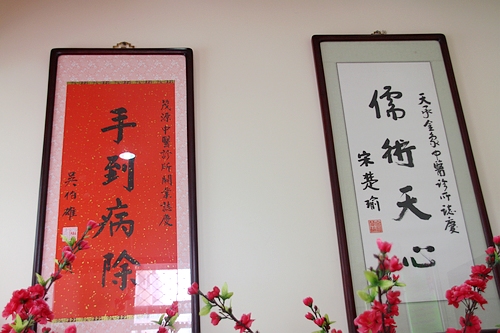 茂源中醫診所開業誌慶
手到病除
吳伯雄
天承金象中醫診所誌慶
儒術天心
宋楚瑜